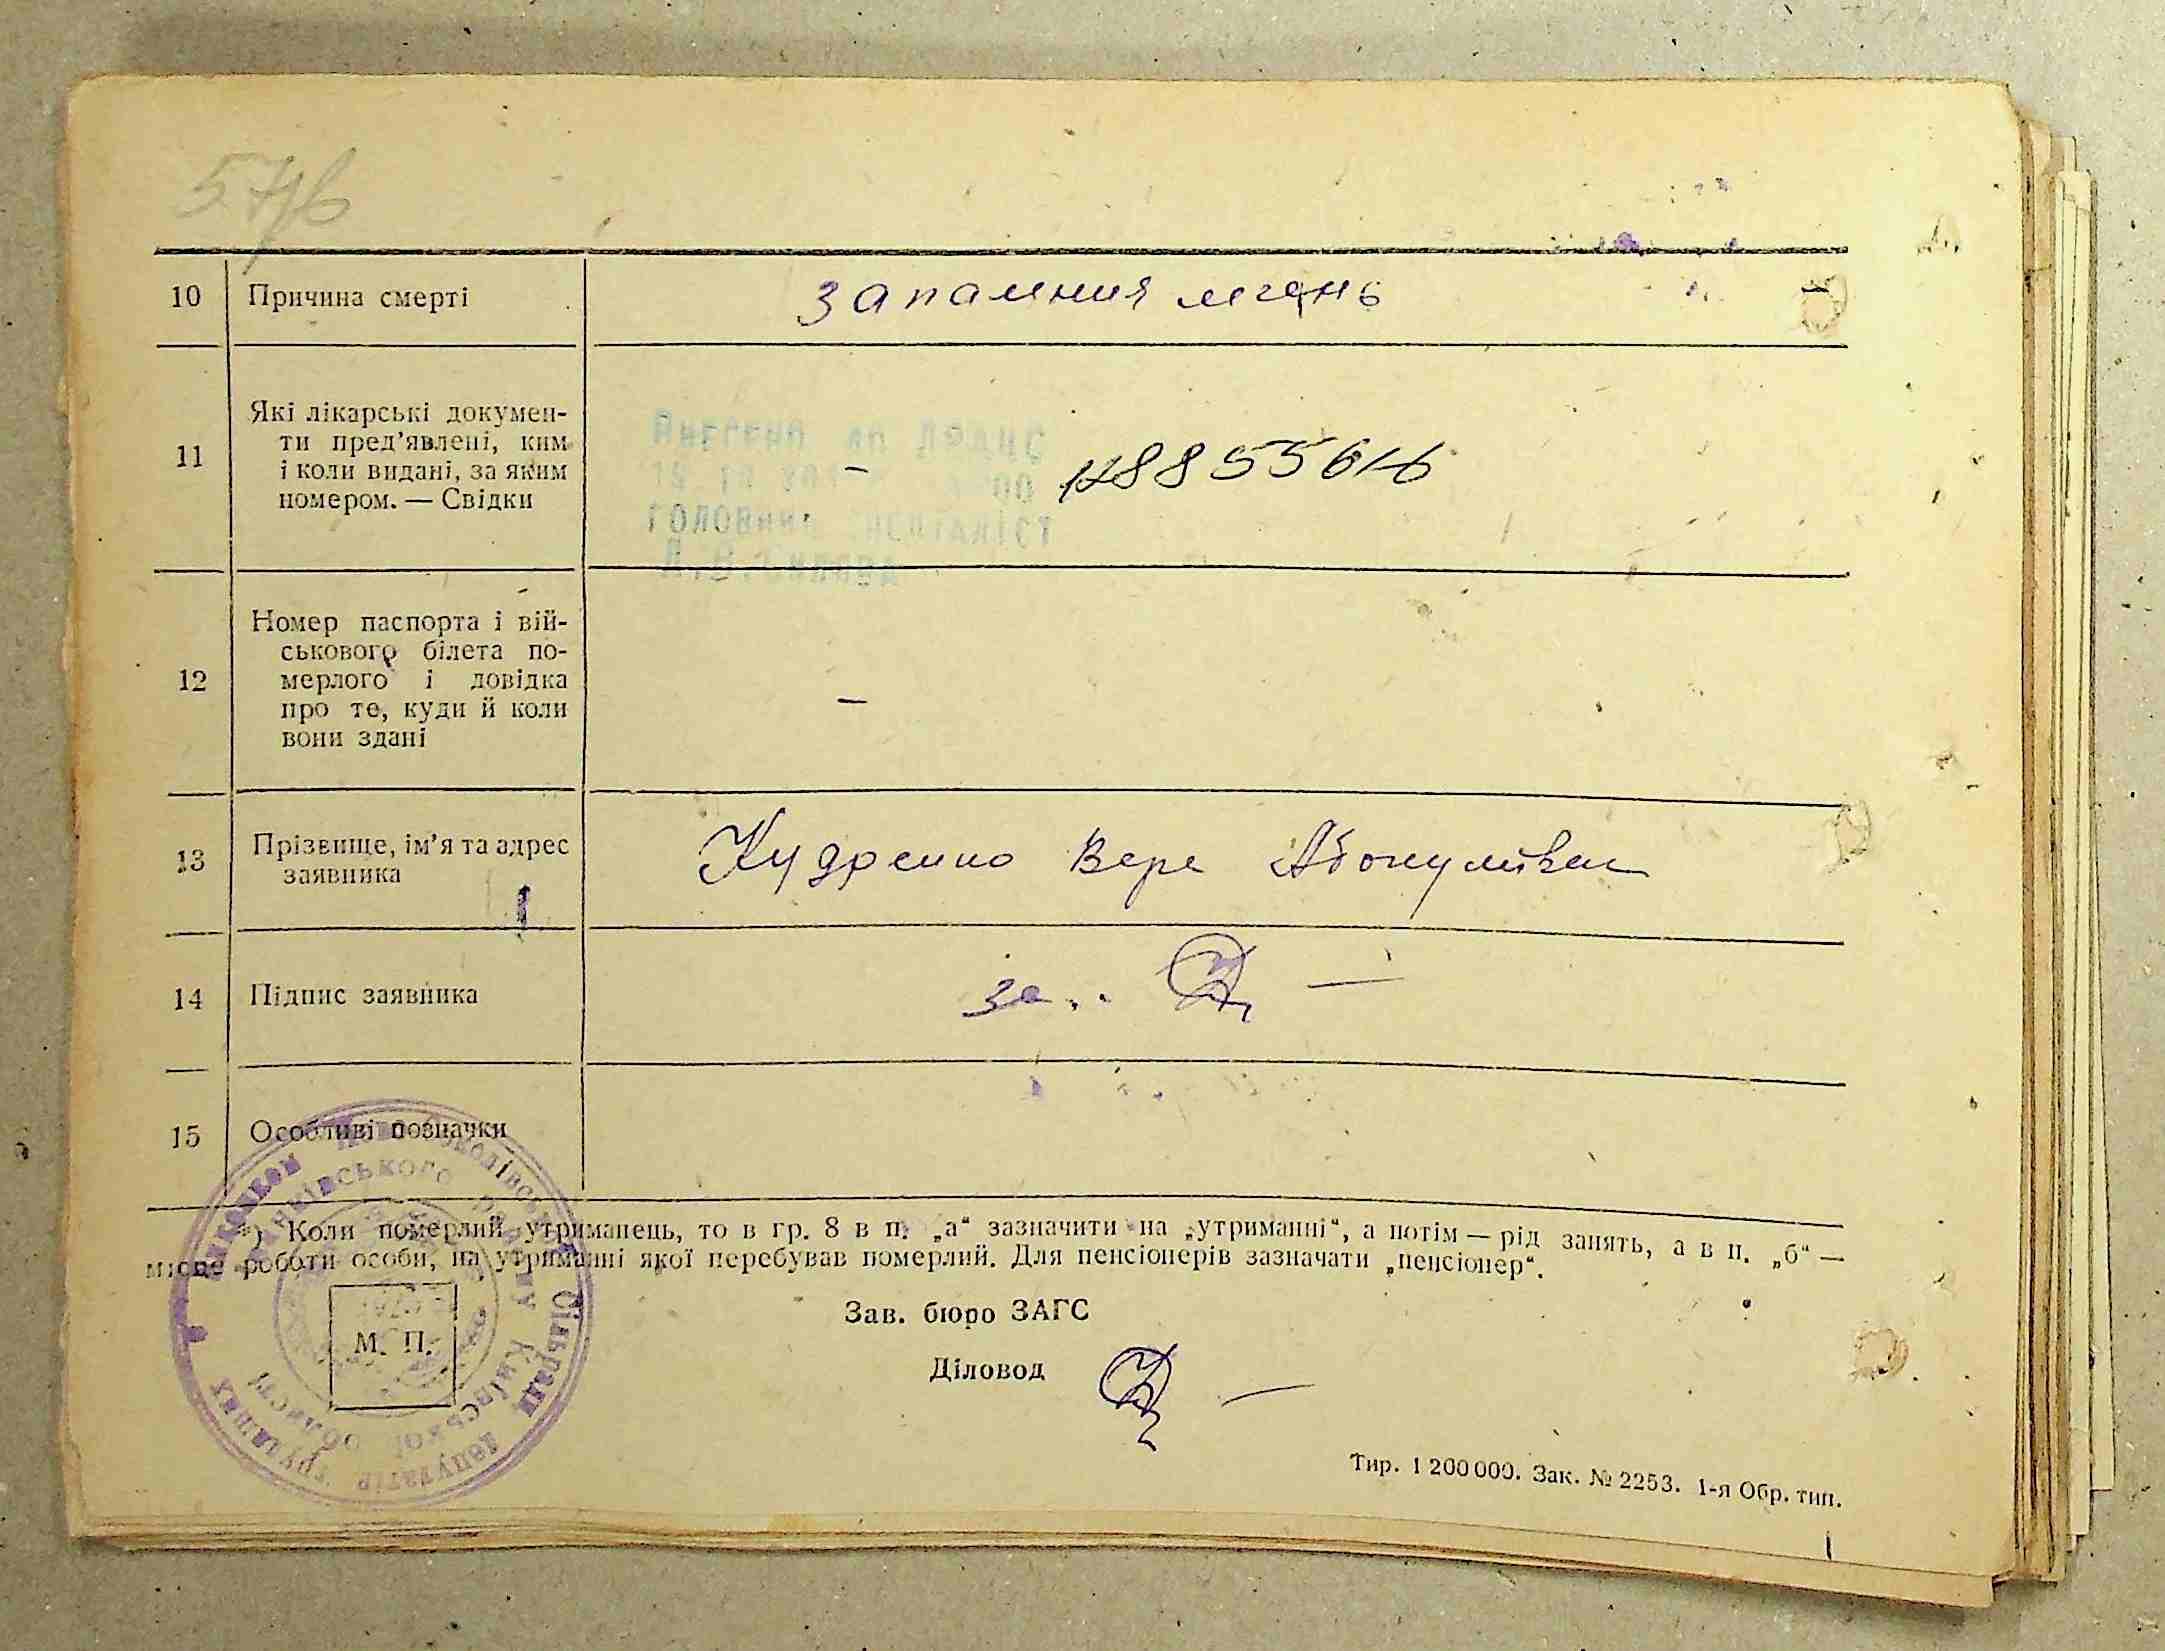 10 Причина смерті
запалення легень
11 Які лікарські докумен-
ти пред’явлені, ким
і коли видані, за яким
номером. — Свідки
–
ГОЛОВНИЙ СПЕЦІАЛІСТ
12 Номер паспорта і вій-
ськового білета по-
мерлого і довідка
про те, куди й коли
вони здані
–
13 Прізвище, ім’я та адрес
заявника
Кудренко Вера
14 Підпис заявника
за
15 Особливі позначки
*) Коли померлий утриманець, то в гр. 8 в п. „а“ зазначити на „утриманні“, а потім — рід занять, а в п. „б“ —
місце роботи особи, на утриманні якої перебував померлий. Для пенсіонерів зазначати „пенсіонер“.
М. П.
Зав. бюро ЗАГС
Діловод
Виконком сільради депутатів трудящих
району Київської області
Тир. 1 200 000. Зак. № 2253. 1-я Обр. тип.